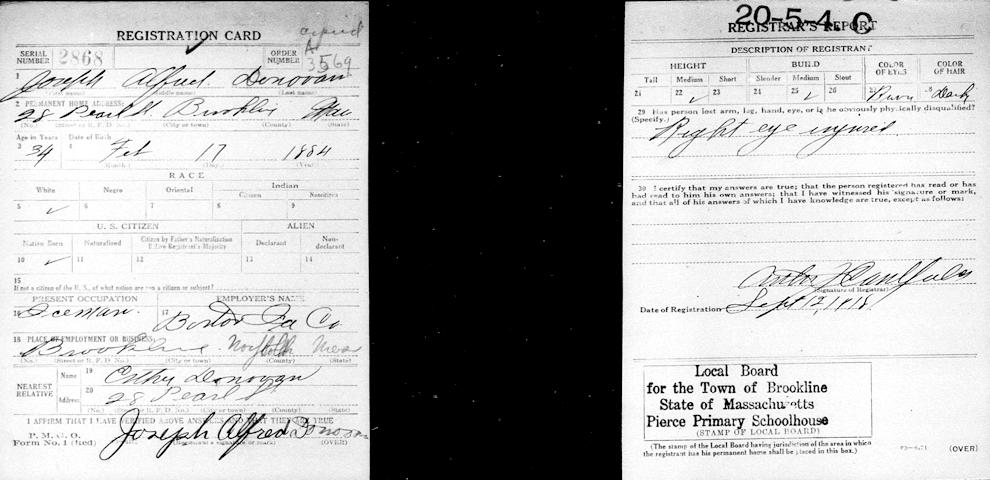 REGISTRATION CARD
SERIAL NUMBER 2868
ORDER NUMBER A 3569
1 Joseph Alfred Donovan
(Middle name) (Last name)
2 PERMANENT HOME ADDRESS:
28 Pearl St. Brookline Mass
(No.) (Street or R. F. D. No.) (City or town) (County) (State)
Age in Years Date of Birth
3 34 4 Feb 17 1884
(Month.) (Day.) (Year.)
RACE
White Negro Oriental Indian
Citizen Noncitizen
5 ✓ 6 7 8 9
U. S. CITIZEN ALIEN
Native Born Naturalized Citizen by Father's Naturalization Before Registrant's Majority Declarant Non-declarant
10 ✓ 11 12 13 14
15
If not a citizen of the U. S., of what nation are you a citizen or subject?
PRESENT OCCUPATION EMPLOYER'S NAME
16 Iceman 17 Boston Ice Co
18 PLACE OF EMPLOYMENT OR BUSINESS:
Brookline Norfolk Mass
(No.) (Street or R. F. D. No.) (City or town) (County) (State)
NEAREST RELATIVE
Name 19 Donovan
Address 20 28 Pearl St
(No.) (Street or R. F. D. No.) (City or town) (County) (State)
I AFFIRM THAT I HAVE VERIFIED ABOVE ANSWERS AND THAT THEY ARE TRUE
P. M. G. O.
Form No. 1 (Red) Joseph Alfred Donovan
(Registrant's signature or mark) (OVER)
20-5-4 C
REGISTRAR'S REPORT
DESCRIPTION OF REGISTRANT
HEIGHT BUILD COLOR OF EYES COLOR OF HAIR
Tall Medium Short Slender Medium Stout
21 22 ✓ 23 24 25 ✓ 26 27 Brown 28 Dark
29 Has person lost arm, leg, hand, eye, or is he obviously physically disqualified?
(Specify.) Right eye injured
30 I certify that my answers are true; that the person registered has read or has
had read to him his own answers; that I have witnessed his signature or mark,
and that all of his answers of which I have knowledge are true, except as follows:
(Signature of Registrar)
Date of Registration Sept 12, 1918
Local Board
for the Town of Brookline
State of Massachusetts
Pierce Primary Schoolhouse
(STAMP OF LOCAL BOARD)
(The stamp of the Local Board having jurisdiction of the area in
which the registrant has his permanent home shall be placed in this box.)
(OVER)